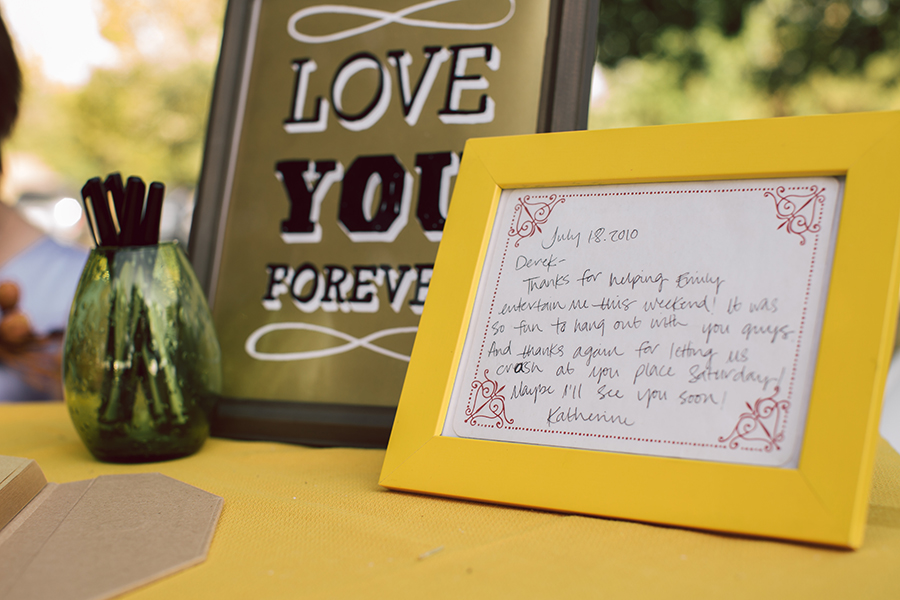 LOVE
YOU
FOREVE
July 18. 2010
Derek-
Thanks for helping Emily
entertain me this weekend! It was
so fun to hang out with you guys.
And thanks again for letting us
crash at you place Saturday!
Maybe I'll see you soon!
Katherine